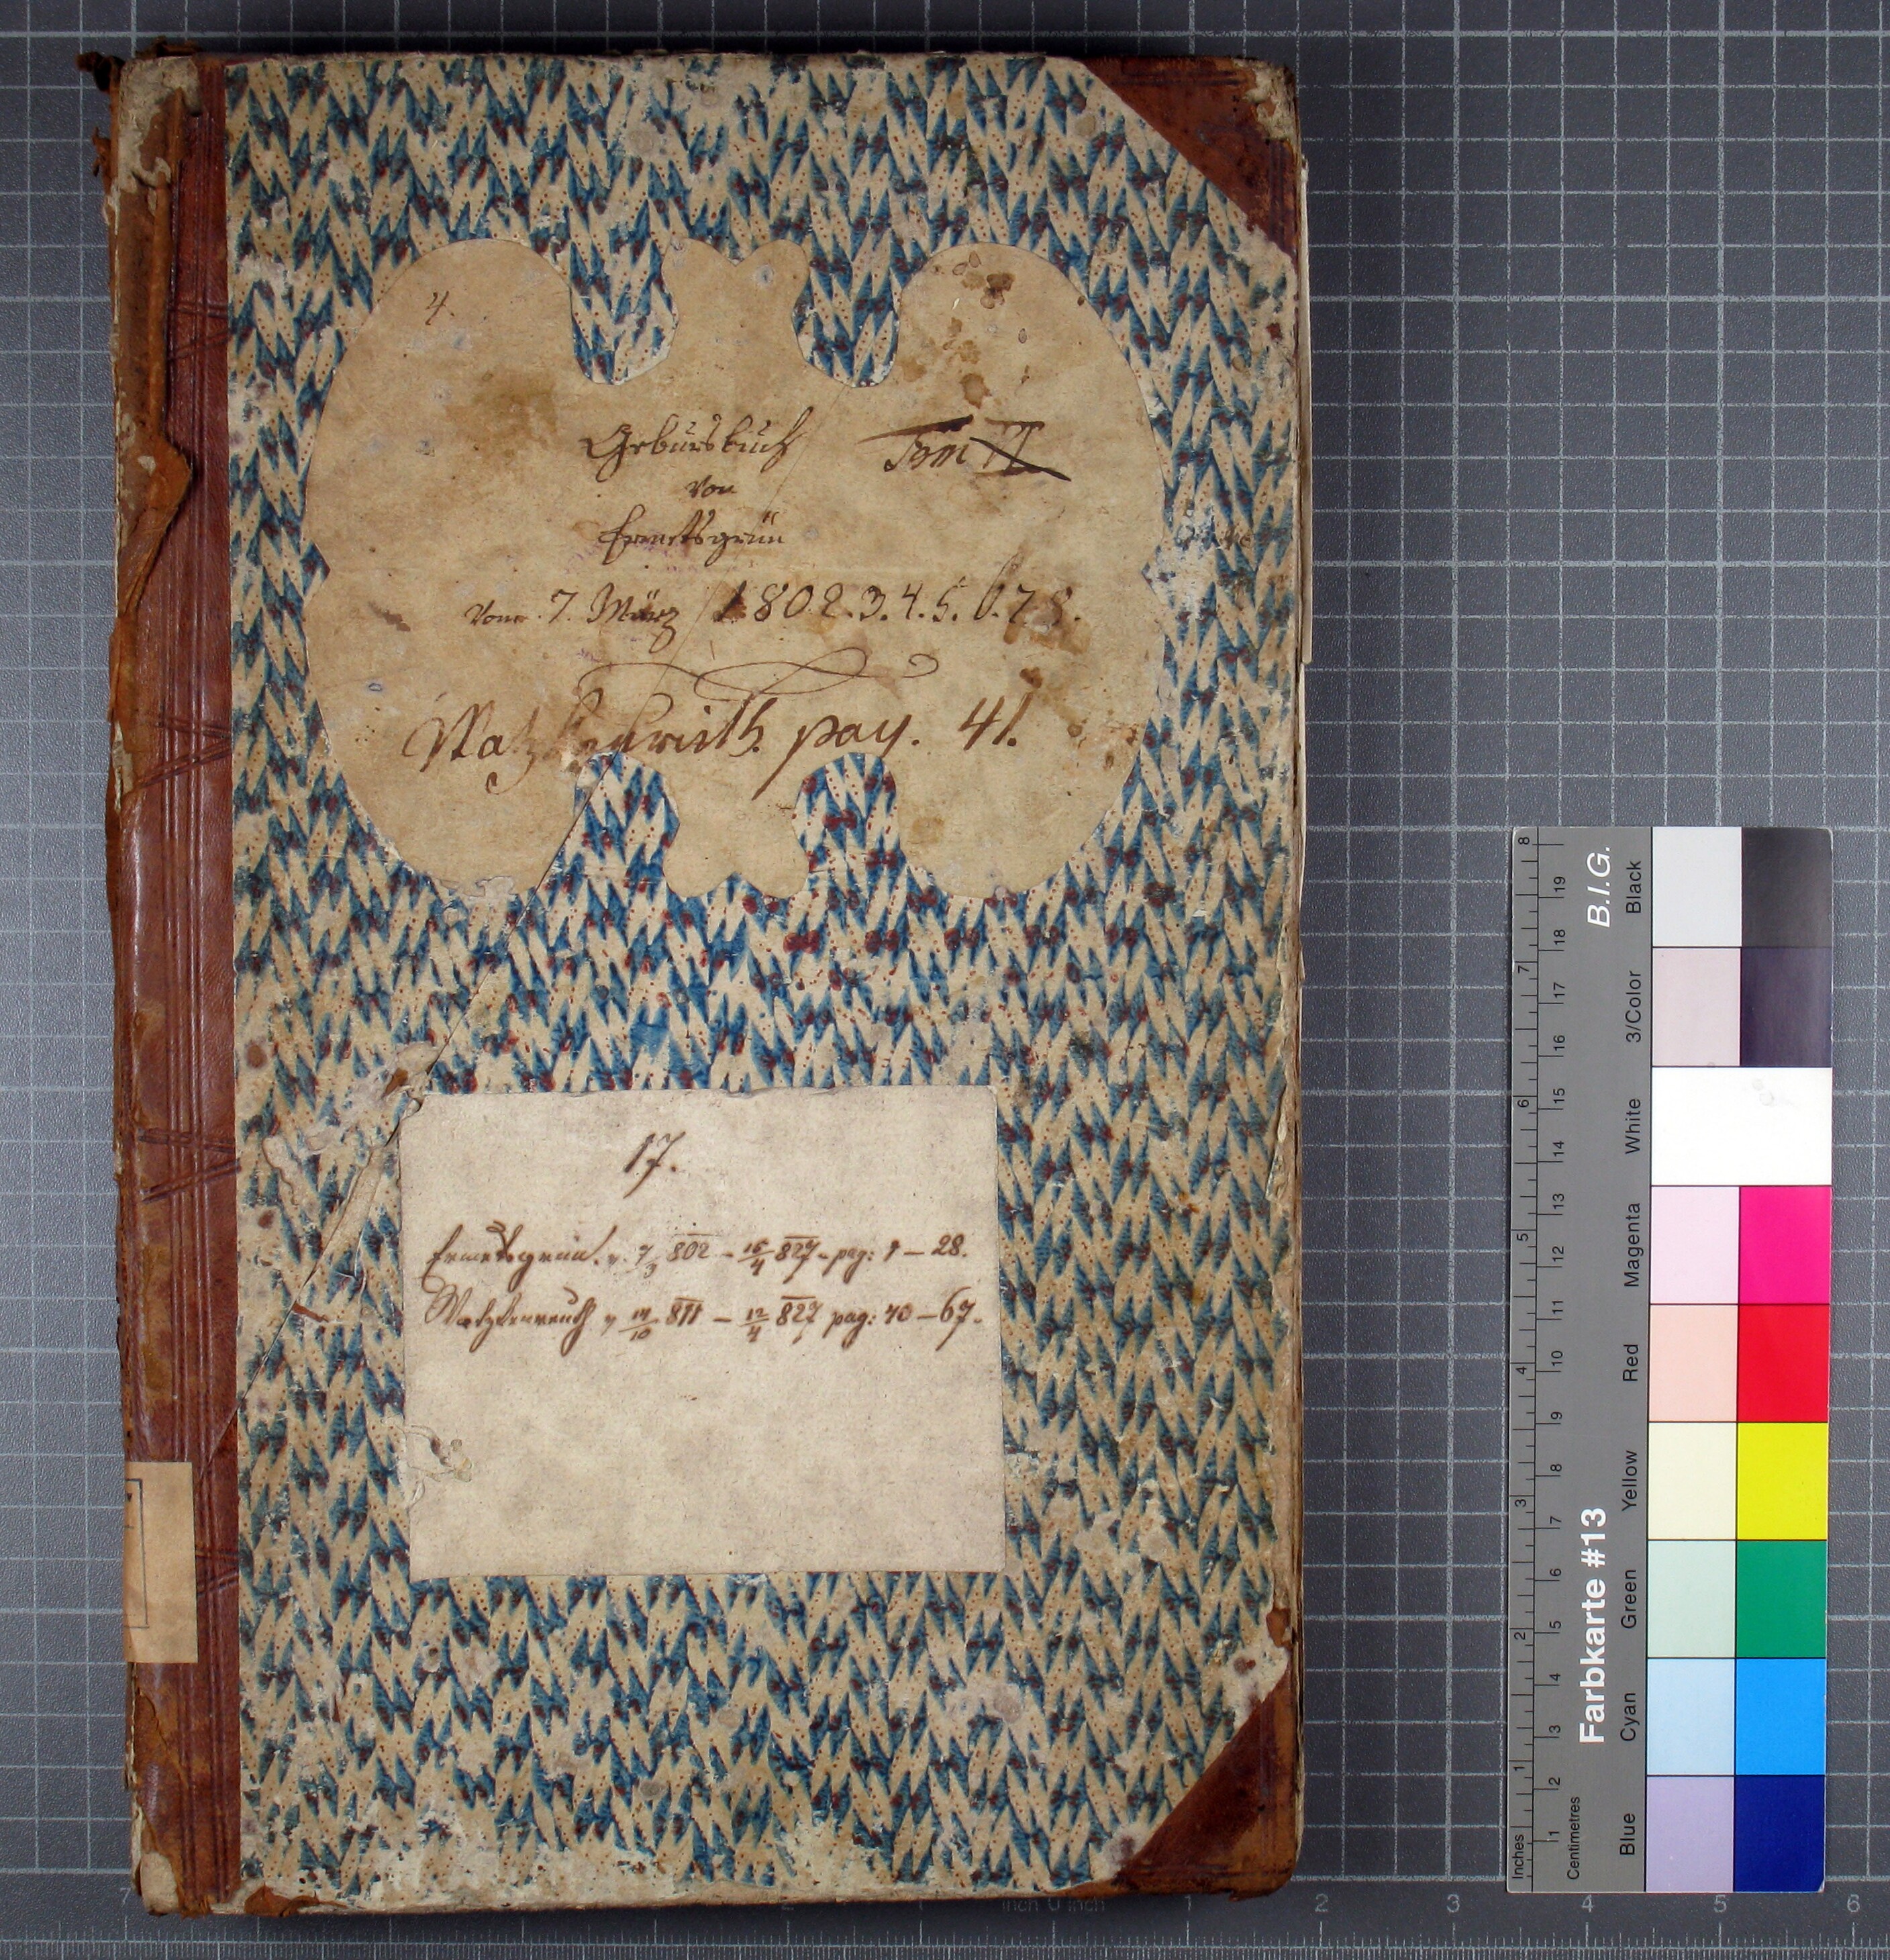 4.
Geburtsbuch
Tom VI
von
Ermetsgrün
vom 7. März 1802.3.4.5.6.7.8.
Watzkenreith. pag. 41.
17.
Ermetsgrün. v. 7/3 802 – 15/4 827 – pag: 1 – 28.
Watzkenreuth v 14/10 811 – 12/4 827 pag: 40 – 67.
B.I.G.
Farbkarte #13
Black
3/Color
White
Magenta
Red
Yellow
Green
Cyan
Blue
Inches 1 2 3 4 5 6 7 8
Centimetres 1 2 3 4 5 6 7 8 9 10 11 12 13 14 15 16 17 18 19
inch 0 inch 1 2 3 4 5 6